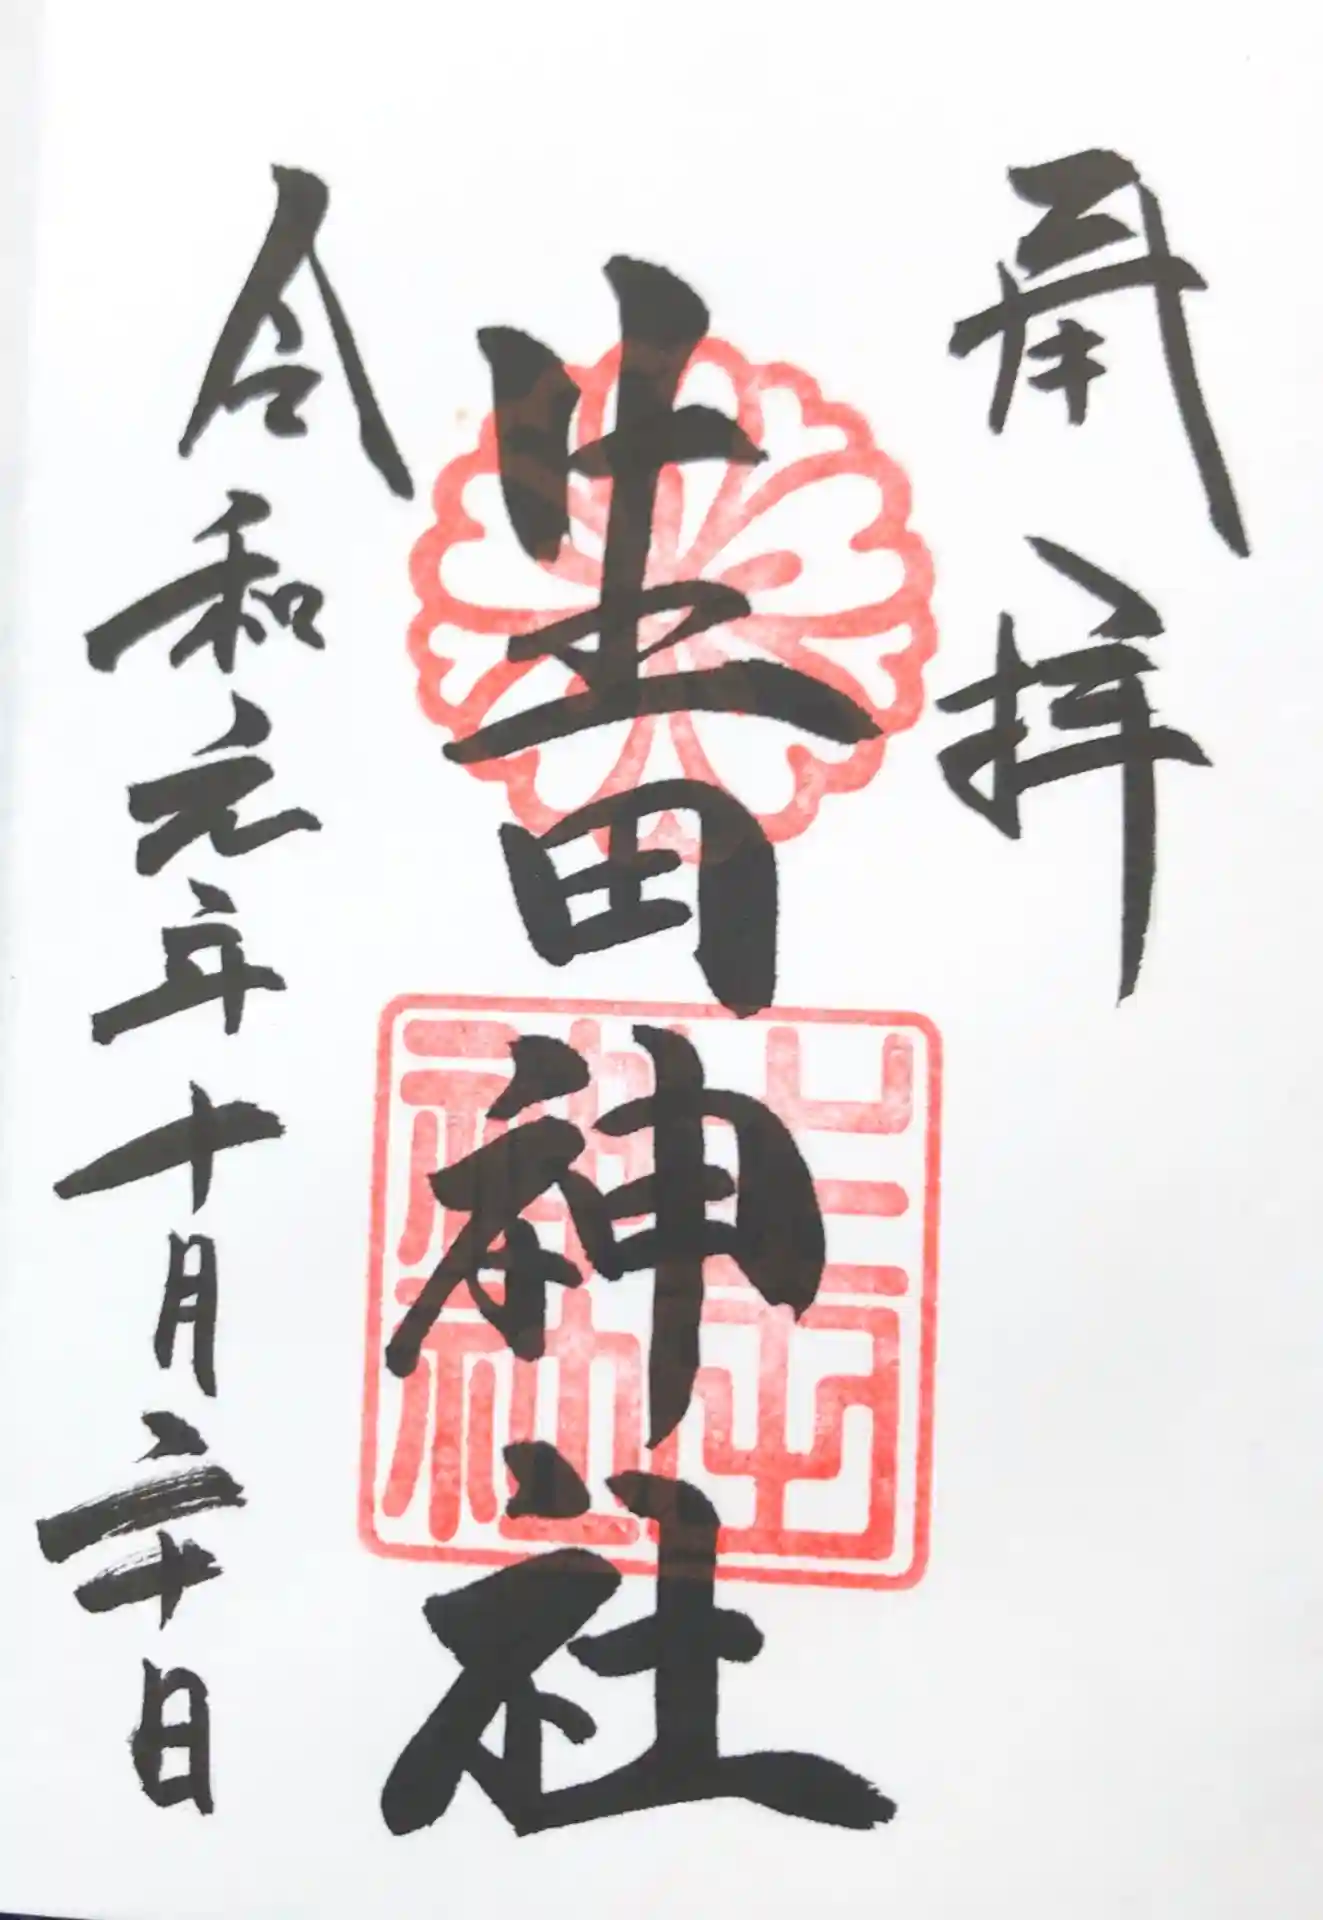 奉拝
生田神社
生田神社
令和元年十月二十日